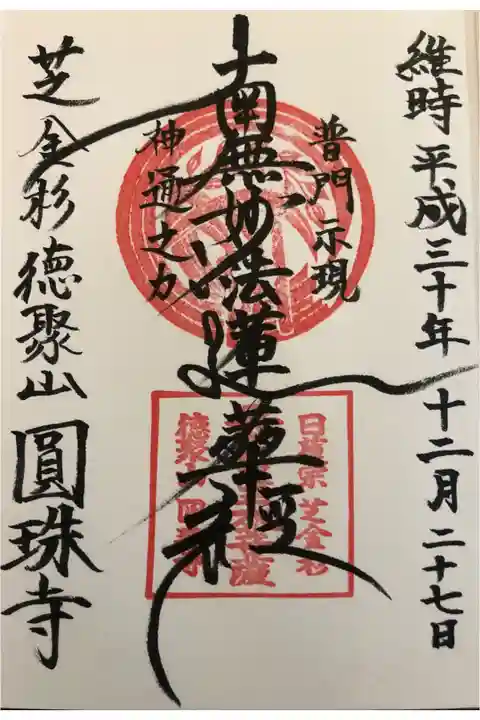 維時 平成三十年 十二月 二十七日
普門示現
南無妙法蓮華經
神通之力
芝金杉 徳聚山 圓珠寺
日蓮宗 芝金杉